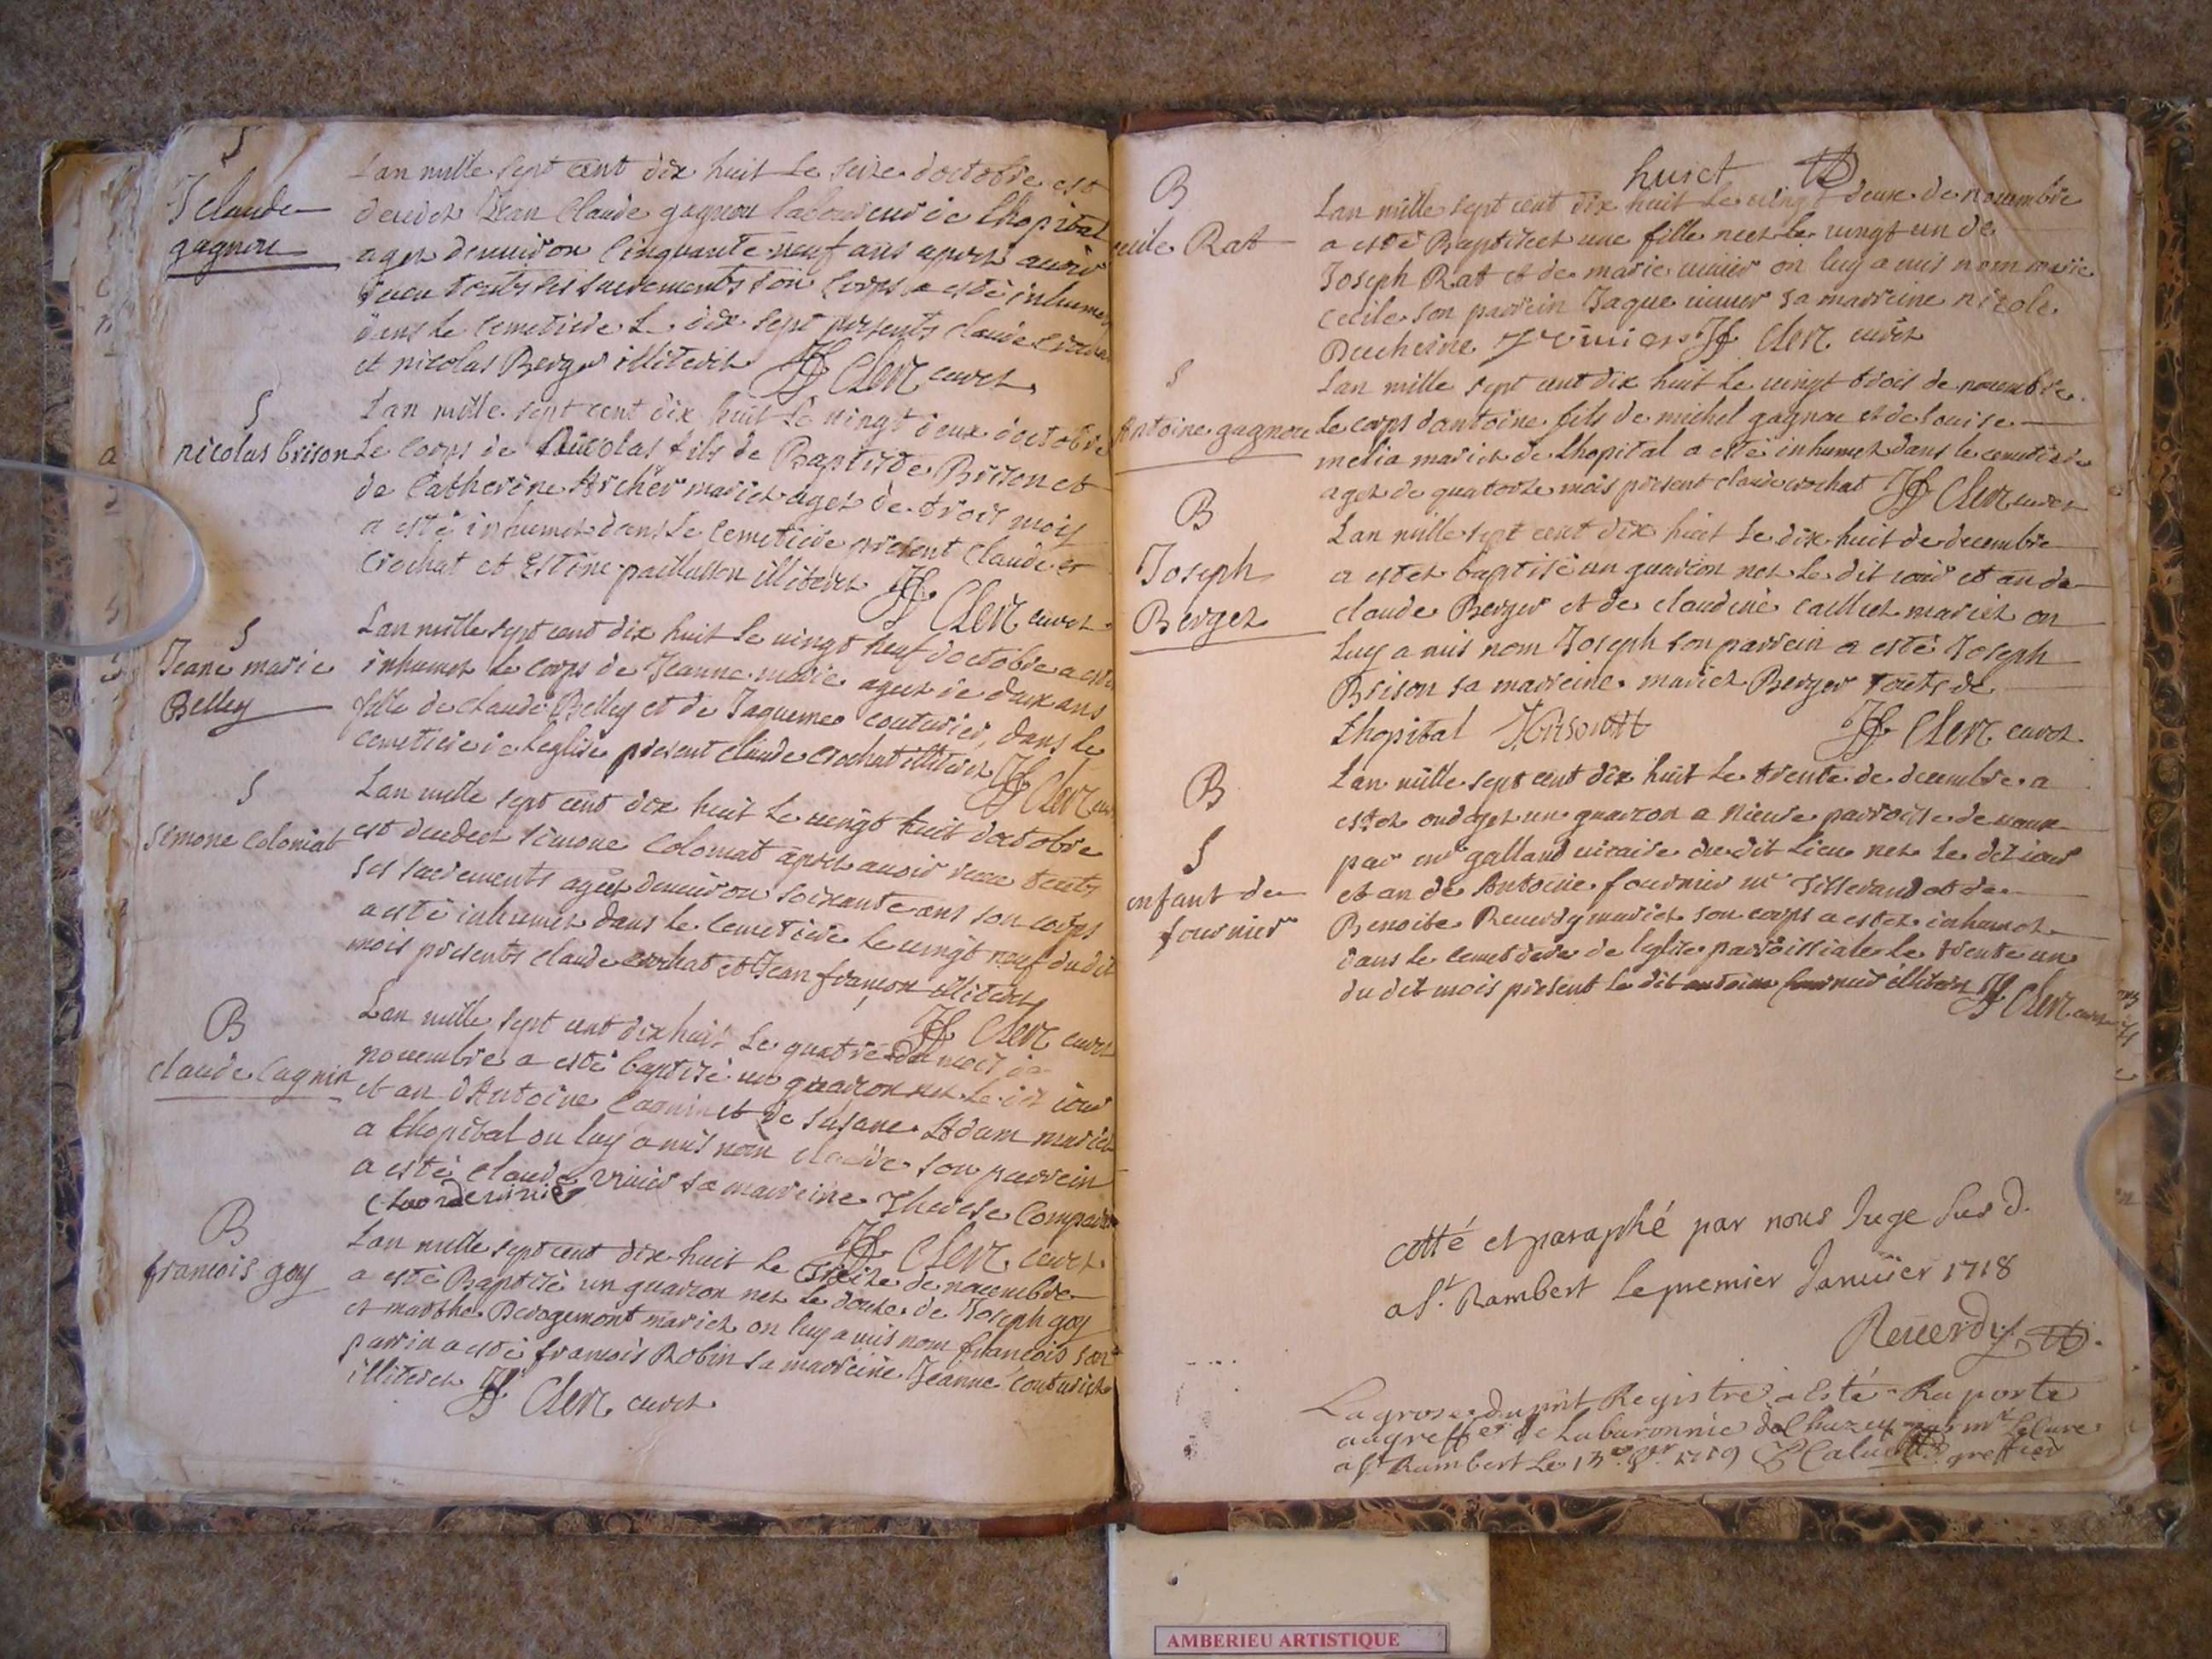 S
J claude
gagnon
Lan mille sept cent dix huit le seize doctobre est
decedez Jean Claude gagnon laboureur de Lhopital
agez denuiron Cinquante neuf ans apres auoir
receu touts ses sacrements son Corps a esté inhumez
dans le Cemetiere Le dix sept presents claude
et nicolas Berger illiterez Clerc curez
S
nicolas brison
Lan mille sept cent dix huit le vingt deux doctobre
Le corps de Nicolas fils de Baptiste Brison et
de Catherine Archer mariez agez de trois mois
a esté inhumez dans le Cemetiere present Claude
Crochat et Estine paillasson illiterez
Clerc curez
S
Jeane marie
Belley
Lan mille sept cent dix huit le uingt neuf doctobre a esté
inhumez le corps de Jeanne marie ageez de deux ans
fille de claude Belley et de Jaqueme couturier, dans le
cemetiere de leglise present claude crochat illiterez
Clerc
S
Simone Colomat
Lan mille sept cent dix huit le uingt huit doctobre
est decedeez simone Colomat aprez auoir receu touts
ses sacrements ageez denuiron soixante ans son corps
a esté inhumez dans le Cemetiere le uingt neuf du dit
mois presents claude crochat et Jean françon illiterez
Clerc curez
B
claude Cagnin
Lan mille sept cent dix huit Le quatre du mois de
nouembre a esté baptisé un guarcon nez Le dit iour
et an d'Antoine Cagnin et de Susane Adam mariez
a Lhopital on luy a mis nom claude son parrein
a esté claude viuier sa marreine Therese
Clerc curez
B
francois goy
Lan mille sept cent dix huit le treize de nouembre
a esté Baptisé un guarcon nez le douze de Joseph goy
et marthe mariez on luy a mis nom francois son
parrin a esté francois Robin sa marreine Jeanne couturier
illiterez Clerc curez
huict
B
cecile Rat
Lan mille sept cent dix huit le uingt deux de nouembre
a esté Baptiseez une fille neez le uingt un de
Joseph Rat et de marie uiuier on luy a mis nom marie
Cecile son parrein Jaque uiuier sa marreine nicole
Ducheine J viuier Clerc curez
S
Antoine gagnon
Lan mille sept cent dix huit le uingt trois de nouembre
Le corps dantoine fils de michel gagnon et de louise
melia mariez de Lhopital a esté inhumez dans le cemetiere
agez de quatorze mois present claude crochat Clerc curez
B
Joseph
Berger
Lan mille sept cent dix huit le dix huit de decembre
a estez baptisé un guarcon nez le dit iour et an de
claude Berger et de claudine cailliet mariez on
luy a mis nom Joseph son parrein a esté Joseph
Brison sa marreine mariez Berger touts de
Lhopital J brison Clerc curez
B
S
enfant de
fournier
Lan mille sept cent dix huit le trente de decembre a
estez ondoyez un guarcon a nieure parroisse de uaux
par mr galland uicaire du dit Lieu nez le dit iour
et an de Antoine fournier mr Tisserand et de
Benoite Reuerdy mariez son corps a estez inhumez
dans le cemetiere de leglise parroissiale le trente un
du dit mois present le dit antoine fournier illiterez Clerc curez
cotté et paraphé par nous Juge Sus d.
a St. Rambert Le premier Januier 1718
Reuerdy
La grosse du pnt Registre a Esté Raporté
au greffe de La baronnie de Chazey par mr Le Cure
a St Rambert Le 13e 1719 greffier
AMBERIEU ARTISTIQUE